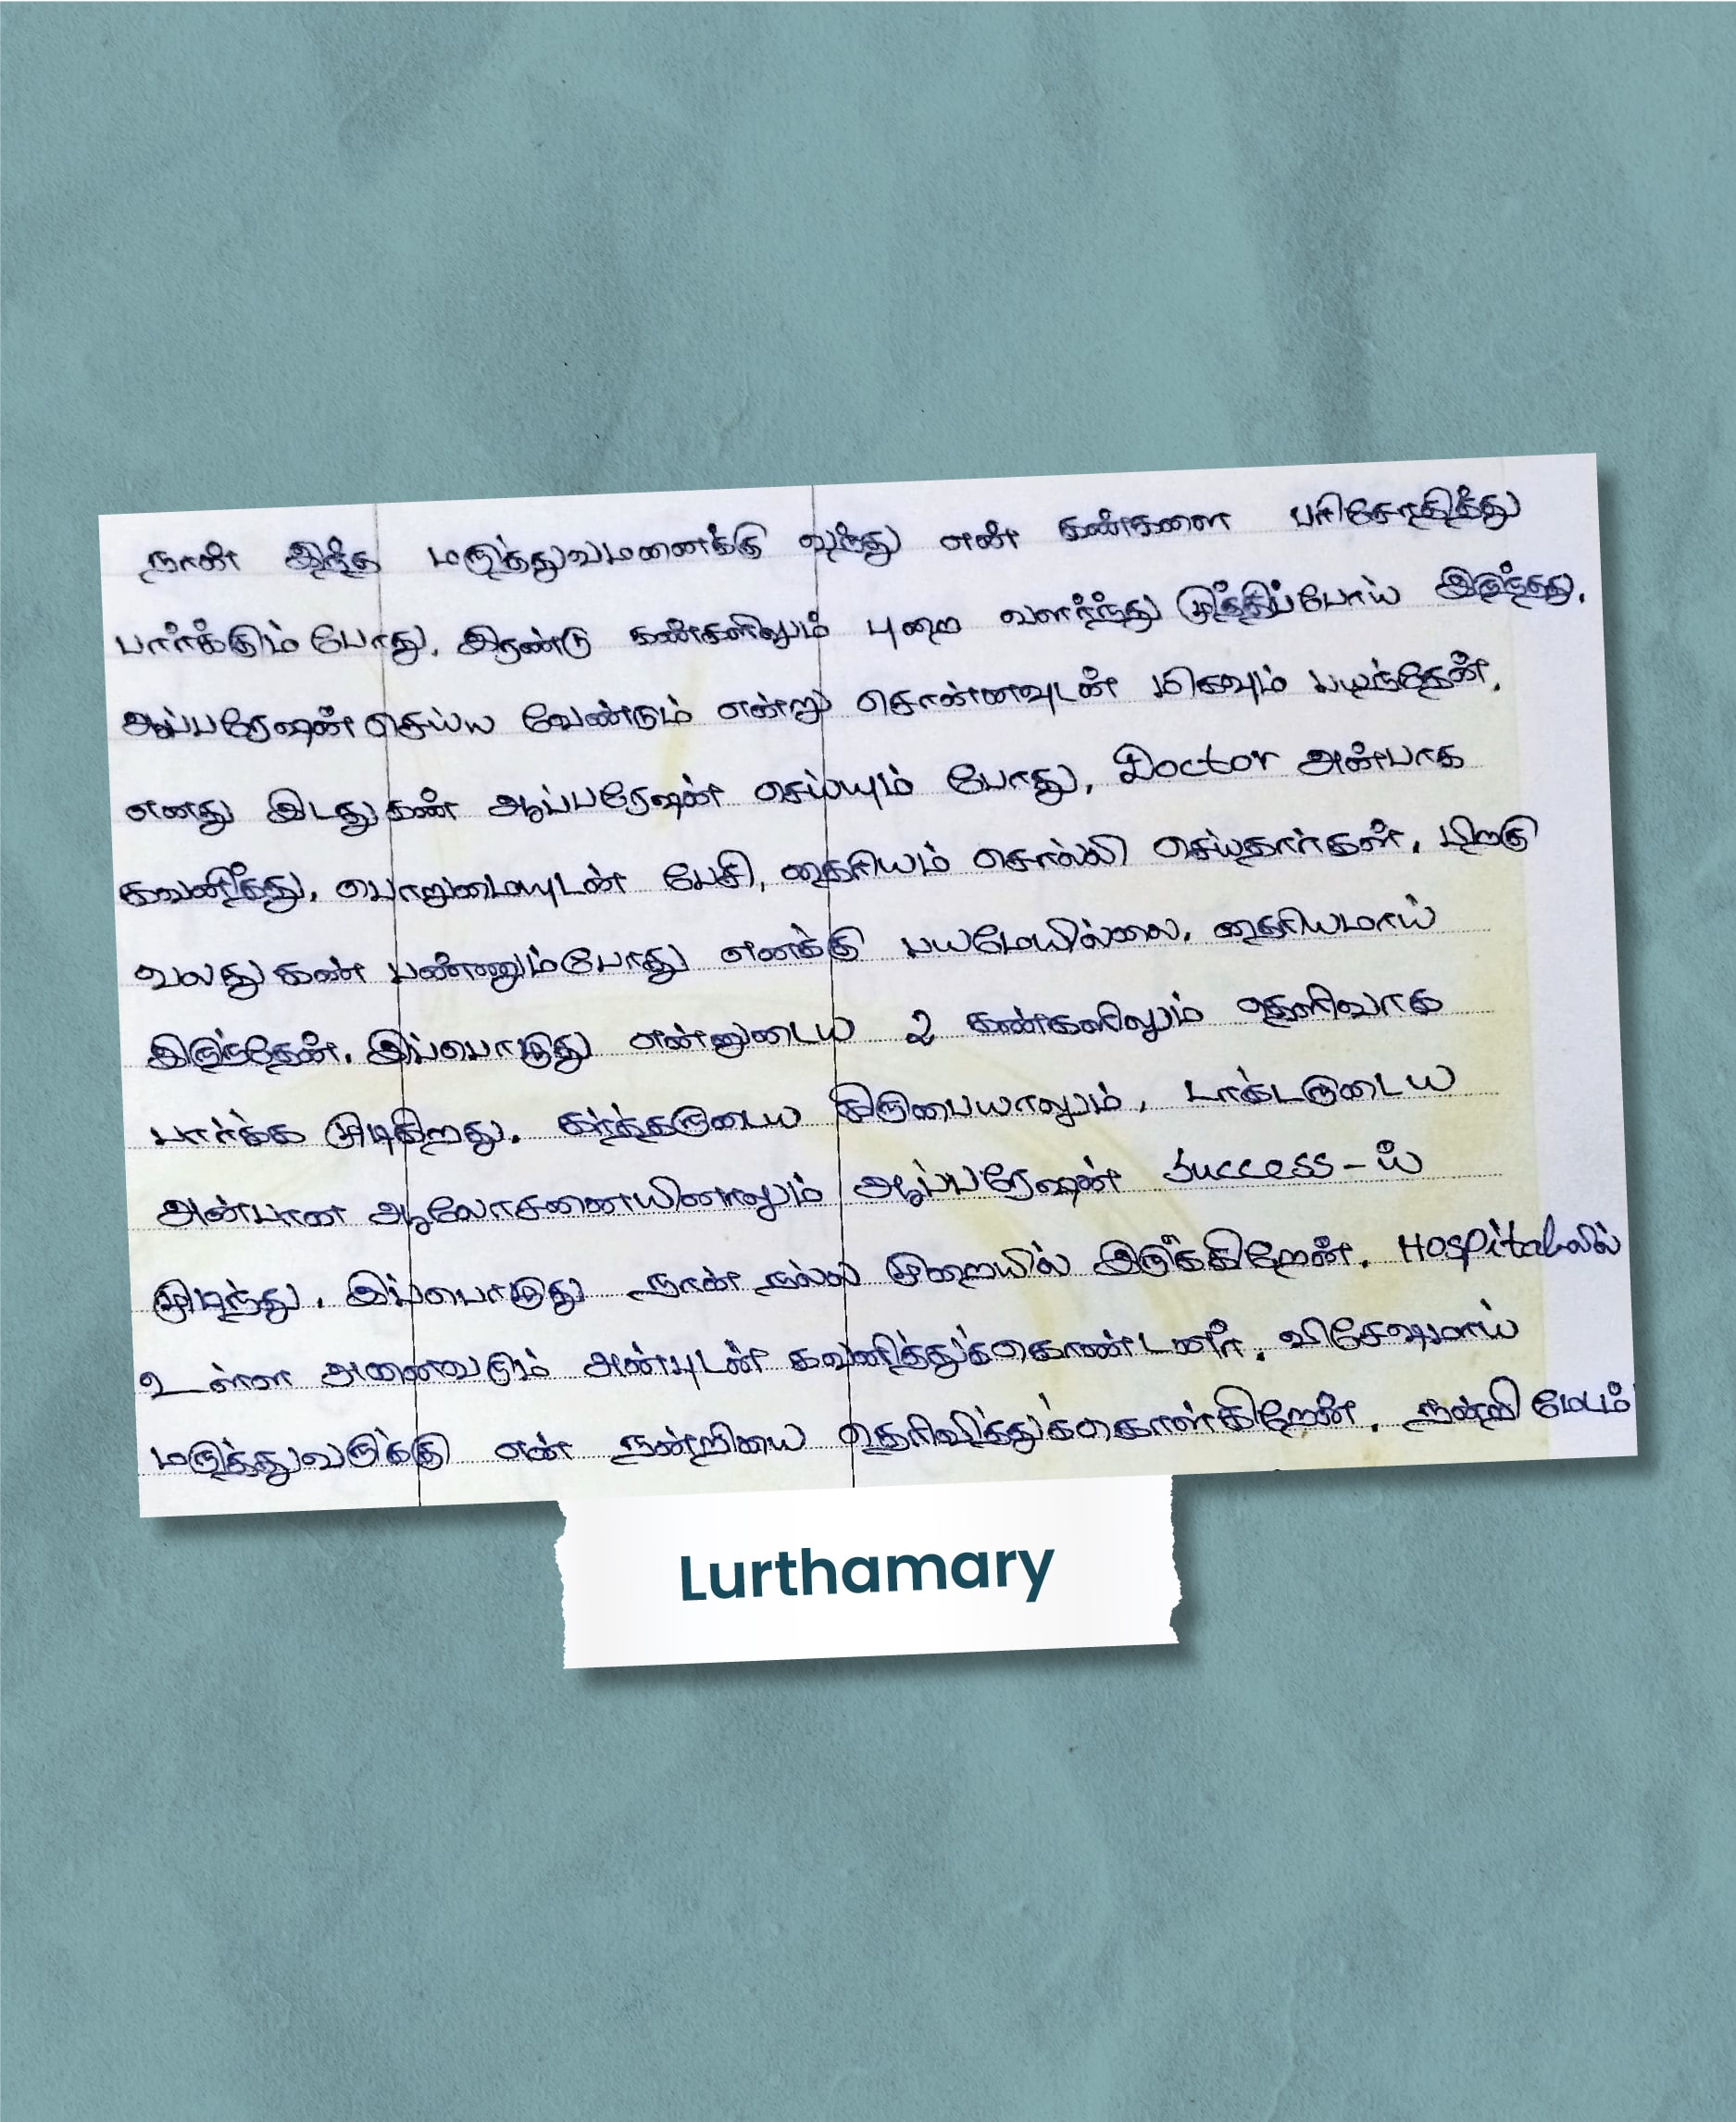 நான் இந்த மருத்துவமனைக்கு வந்து என் கண்களை பரிசோதித்து
பார்க்கும் போது, இரண்டு கண்களிலும் புறை வளர்ந்து முத்திப்போய் இருந்தது,
ஆப்பரேஷன் செய்ய வேண்டும் என்று சொன்னவுடன் மிகவும் பயந்தேன்,
எனது இடது கண் ஆப்பரேஷன் செய்யும் போது, Doctor அன்பாக
கவனித்து, பொறுமையுடன் பேசி, தைரியம் சொல்லி செய்தார்கள், பிறகு
வலது கண் பண்ணும்போது எனக்கு பயமேயில்லை, தைரியமாய்
இருந்தேன். இப்பொழுது என்னுடைய 2 கண்களிலும் தெளிவாக
பார்க்க முடிகிறது. கர்த்தருடைய கிருபையாலும், டாக்டருடைய
அன்பான ஆலோசனையினாலும் ஆப்பரேஷன் Success-ய்
முடிந்து, இப்பொழுது நான் நல்ல முறையில் இருக்கிறேன். Hospitalலில்
உள்ள அனைவரும் அன்புடன் கவனித்துக்கொண்டனர். விசேஷமாய்
மருத்துவருக்கு என் நன்றியை தெரிவித்துக்கொள்கிறேன். நன்றி மேடம்
Lurthamary